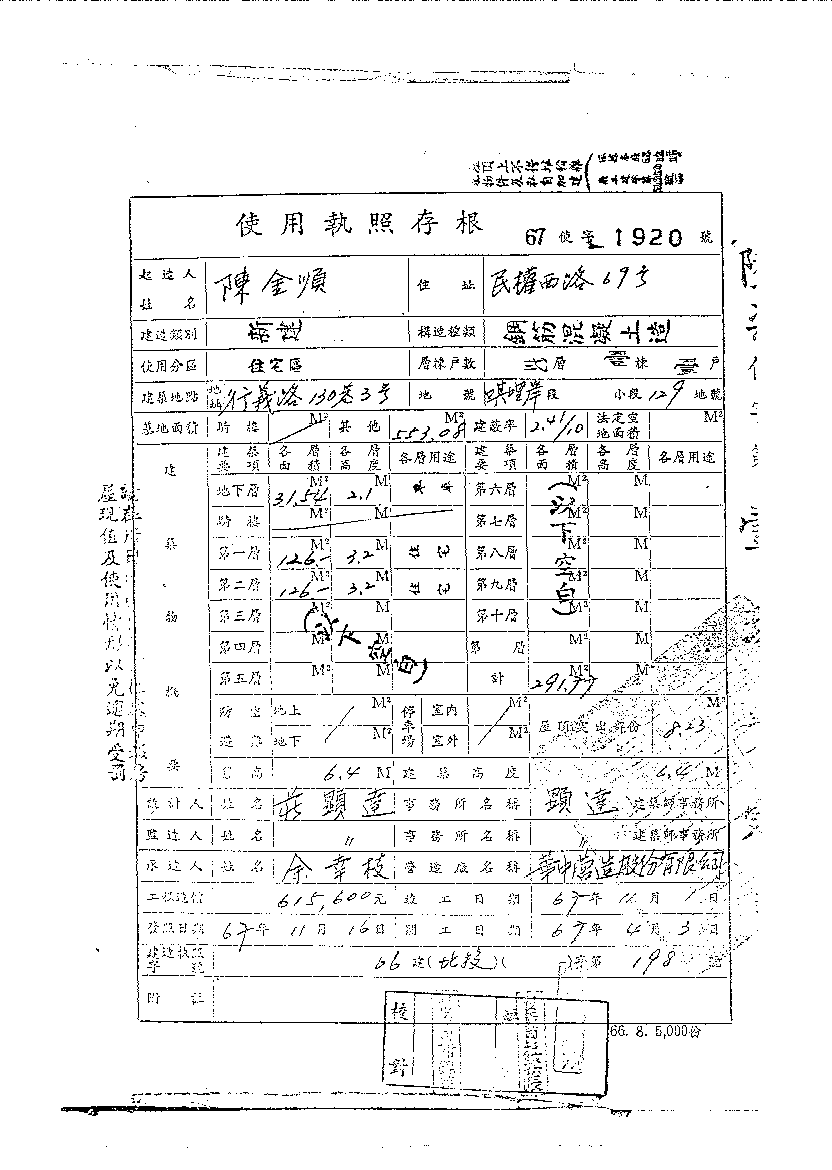 使用執照存根
67 使字 1920 號
起造人姓名 陳金順 住址 民權西路69号
建造類別 新建 構造種類 鋼筋混凝土造
使用分區 住宅區 層棟戶數 弍層 壹棟 壹戶
建築地點 地址 行義路130巷3号 地號 唭哩岸段 小段 129 地號
基地面積 騎樓 M² 其他 553.08 M² 建蔽率 2.41/10 法定空地面積 M²
建築物概要
建築要項 各層面積 各層高度 各層用途 建築要項 各層面積 各層高度 各層用途
地下層 31.54 M² 2.1 M 第六層 M² M
騎樓 M² M 第七層 M² M
第一層 126.- M² 3.2 M 住宅 第八層 M² M
第二層 126.- M² 3.2 M 住宅 第九層 M² M
第三層 M² M 第十層 M² M
第四層 M² M 第 層 M² M
第五層 M² M 計 291.77 M²
(以下空白)
(以下空白)
防空避難 地上 M² 停車場 室內 M² 屋頂突出部份 8.23 M²
地下 M² 室外 M²
簷高 6.4 M 建築高度 6.4 M
設計人 姓名 莊顯達 事務所名稱 顯達 建築師事務所
監造人 姓名 〃 事務所名稱 〃 建築師事務所
承造人 姓名 余幸枝 營造廠名稱 華中營造股份有限公司
工程造價 615,600元 竣工日期 67年11月1日
發照日期 67年11月16日 開工日期 67年4月3日
建造執照字號 66建(北投)( )字第198號
附註
校對
66. 8. 5,000份
屋現值及使用情形以免逾期受罰